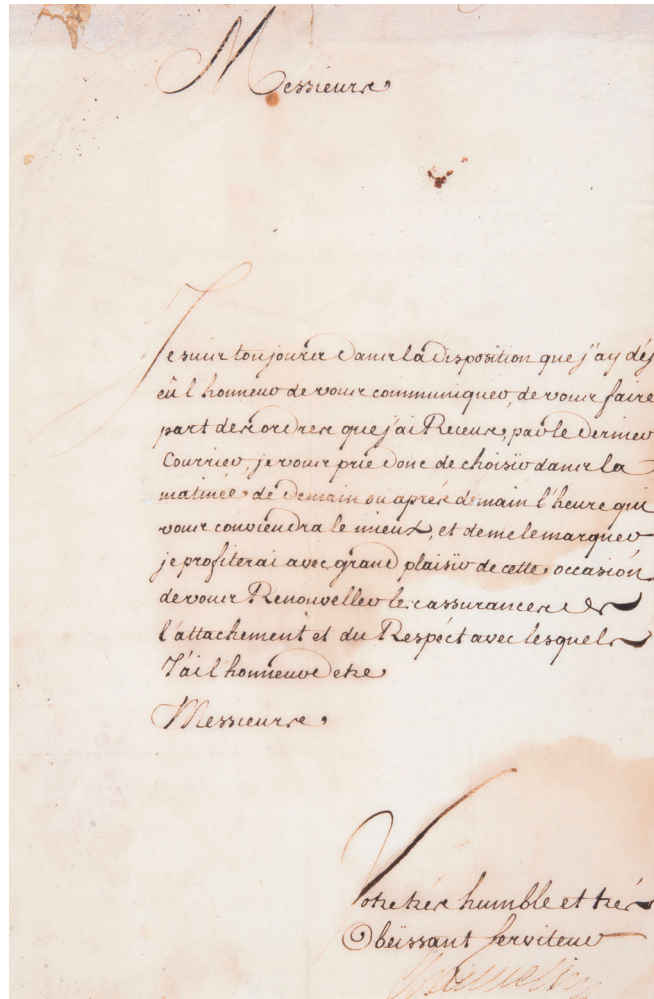 Messieurs
Je suis toujours dans la disposition que j'ay déj
eû l'honneur de vous communiquer, de vous faire
part des ordres que j'ai Receus, par le dernier
Courrier, je vous prie donc de choisir dans la
matinée de demain ou aprés demain l'heure qui
vous conviendra le mieux, et de me le marquer
je profiterai avec grand plaisir de cette occasion
de vous Renouveller les assurances de
l'attachement et du Respéct avec lesquels
J'ai l'honneur d'etre
Messieurs
Votre trés humble et trés
Obeïssant serviteur